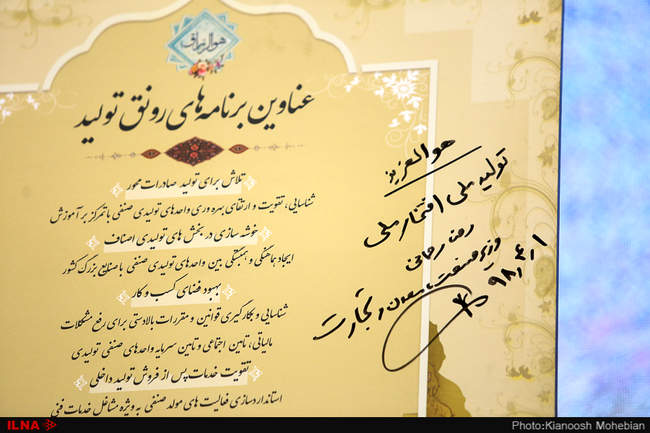 هوالرزاق
عناوین برنامه‌های رونق تولید
تلاش برای تولید صادرات محور
شناسایی، تقویت و ارتقای بهره‌وری واحدهای تولیدی صنفی با تمرکز بر آموزش
خوشه سازی در بخش های تولیدی اصناف
ایجاد هماهنگی و همبستگی بین واحدهای تولیدی صنفی با صنایع بزرگ کشور
بهبود فضای کسب و کار
شناسایی و بکارگیری قوانین و مقررات بالادستی برای رفع مشکلات
مالیاتی، تامین اجتماعی و تامین سرمایه واحدهای صنفی تولیدی
تقویت خدمات پس از فروش تولید داخلی
استانداردسازی فعالیت های مولد صنفی به ویژه مشاغل خدمات فنی
هوالعزیز
تولید ملی افتخار ملی
رضا رحمانی
وزیر صنعت، معدن و تجارت
۹۸٫۴٫۱
ILNA
Photo:Kianoosh Mohebian